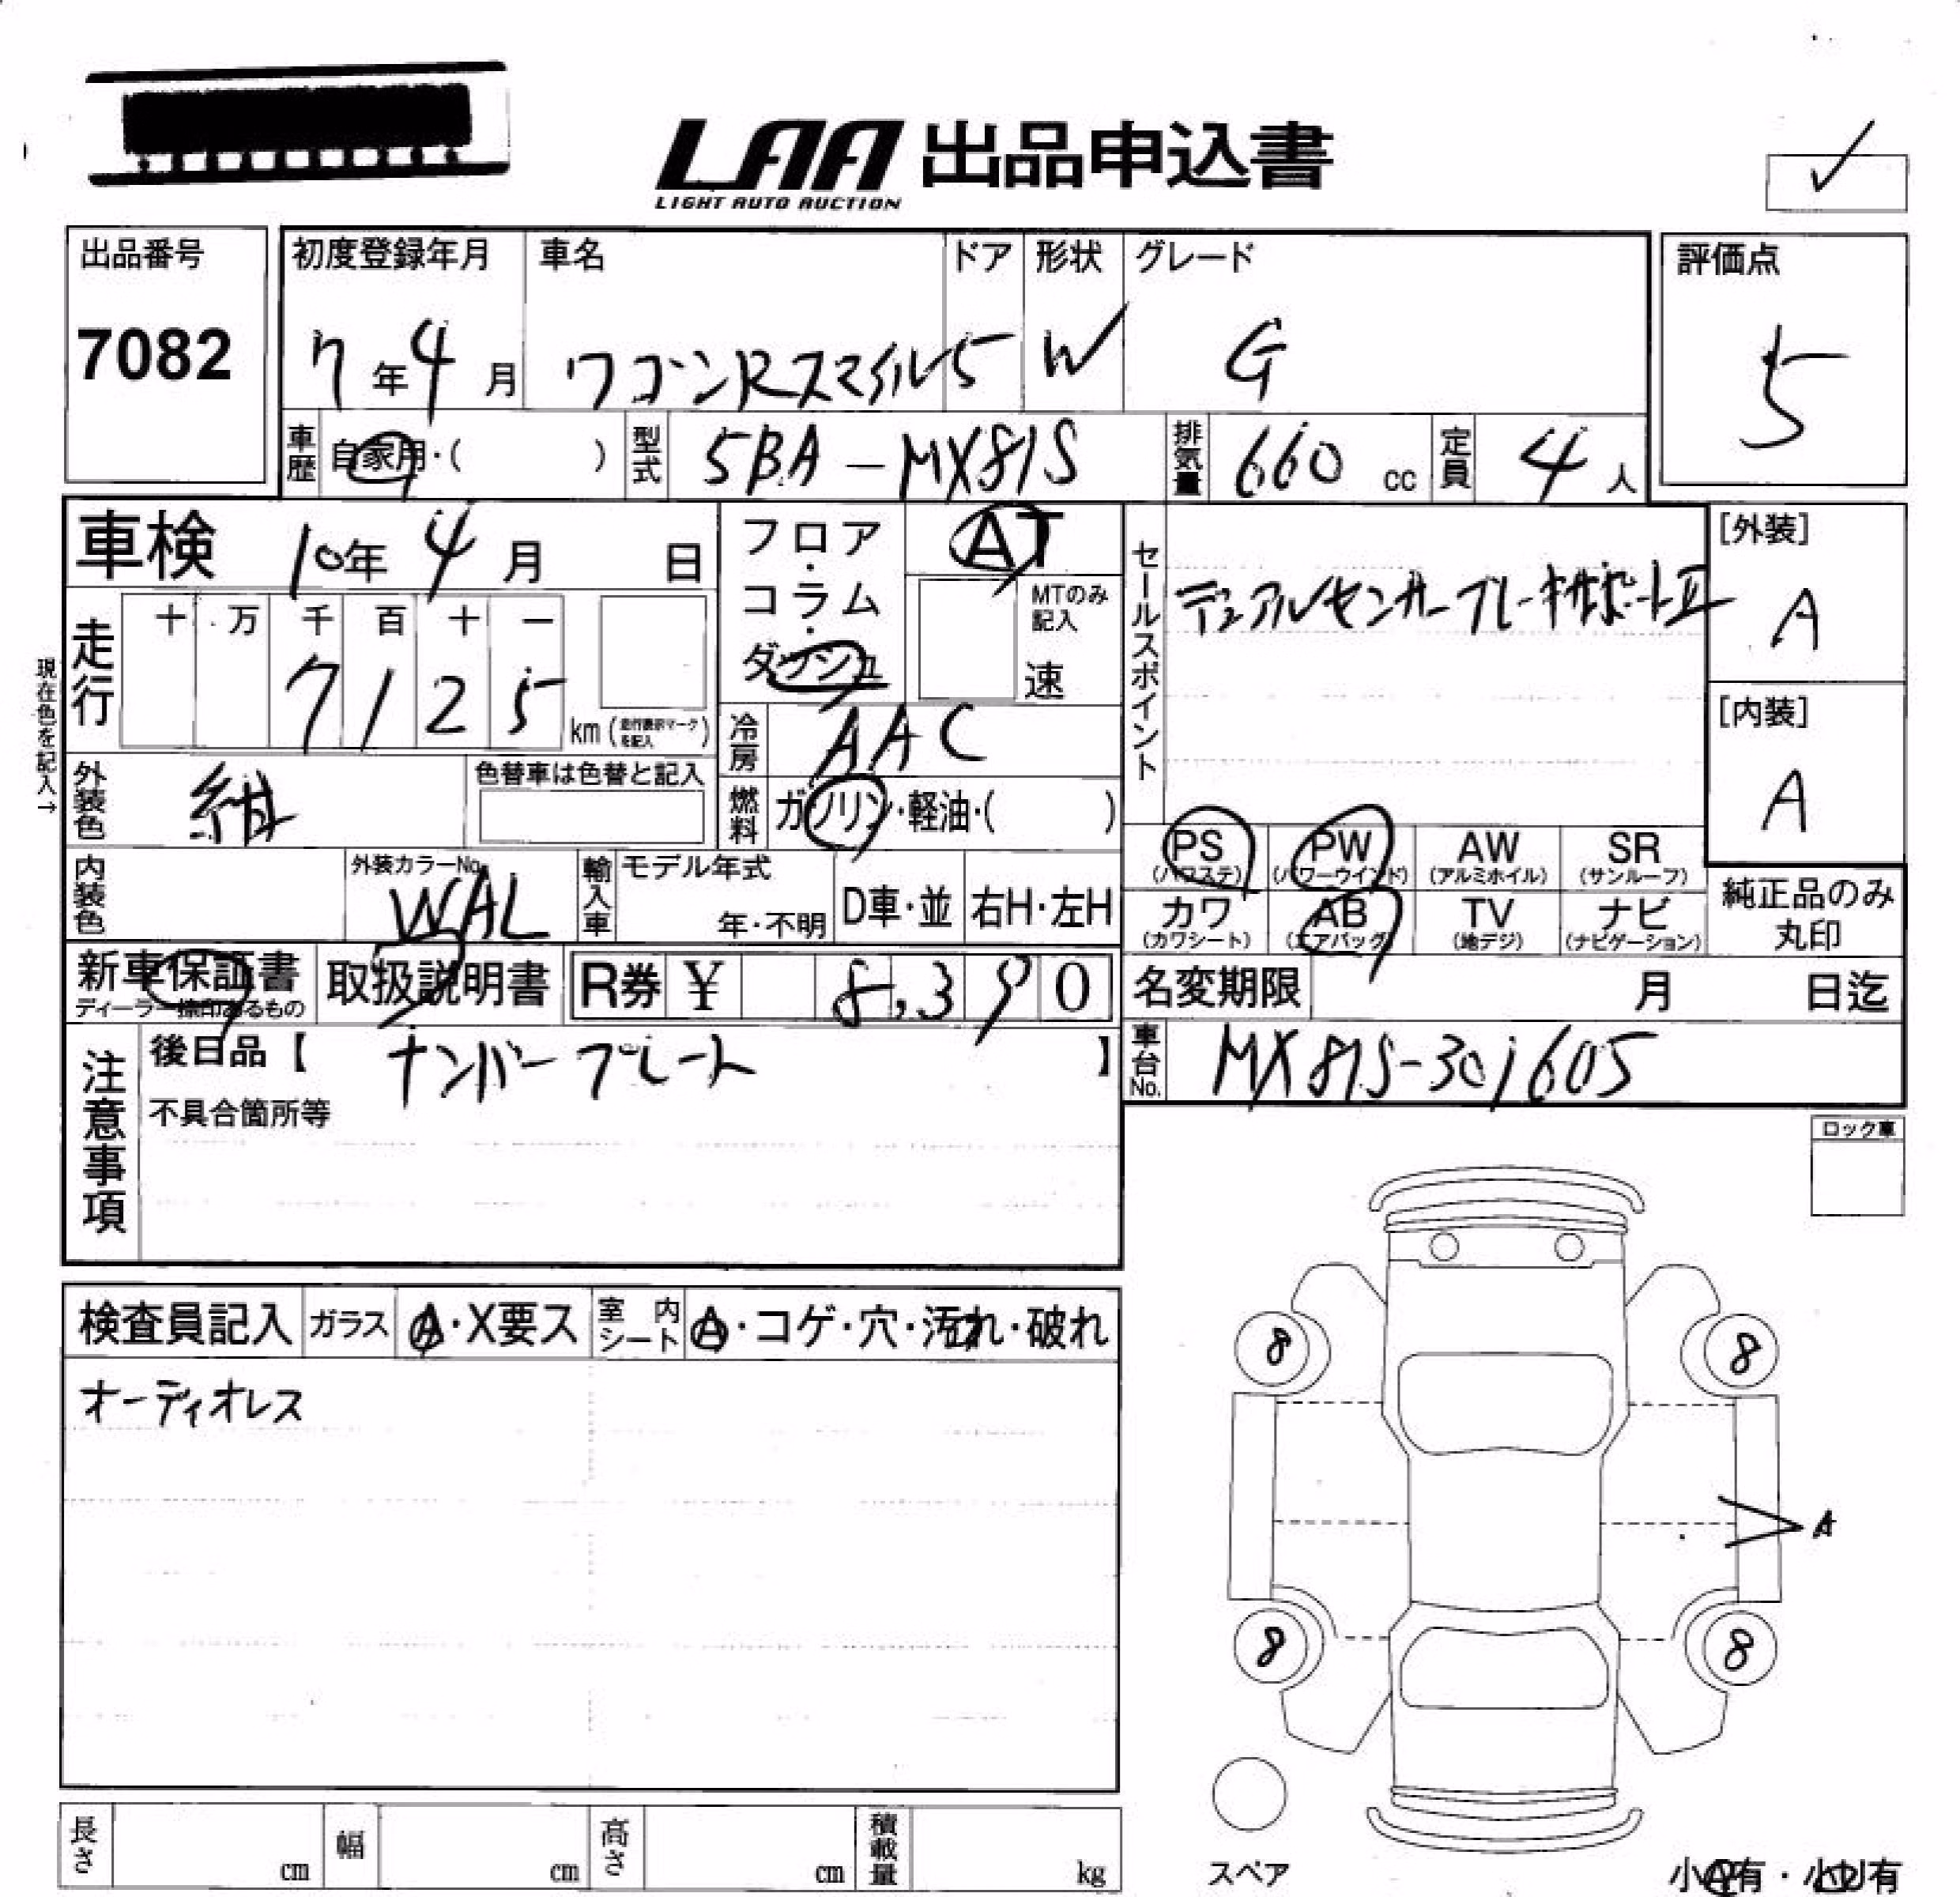 LAA 出品申込書
LIGHT AUTO AUCTION
✓
出品番号
7082
初度登録年月
7年4月
車名
ワゴンRスマイル
ドア
5
形状
W
グレード
G
評価点
5
車歴 自家用・( )
型式 5BA-MX81S
排気量 660 cc
定員 4人
車検 10年4月 日
走行 十 万 千 百 十 一
7125
km (走行表示マークを記入)
現在色を記入→
外装色 紺
色替車は色替と記入
内装色
外装カラーNo.
WAL
フロア・コラム・ダッシュ
AT
MTのみ記入
速
冷房 AAC
燃料 ガソリン・軽油・( )
輸入車 モデル年式
年・不明
D車・並
右H・左H
セールスポイント
デュアルセンサーブレーキサポートⅡ
[外装]
A
[内装]
A
PS (パワステ)
PW (パワーウインド)
AW (アルミホイル)
SR (サンルーフ)
カワ (カワシート)
AB (エアバッグ)
TV (地デジ)
ナビ (ナビゲーション)
純正品のみ丸印
新車保証書
ディーラー捺印あるもの
取扱説明書
R券 ¥ 8,390
名変期限 月 日迄
車台No. MX81S-301605
注意事項
後日品【 ナンバープレート 】
不具合箇所等
ロック車
検査員記入
ガラス
A・X要ス
室内シート
A・コゲ・穴・汚れ・破れ
オーディオレス
8
8
A
8
8
スペア
長さ cm
幅 cm
高さ cm
積載量 kg
小A有・小U有